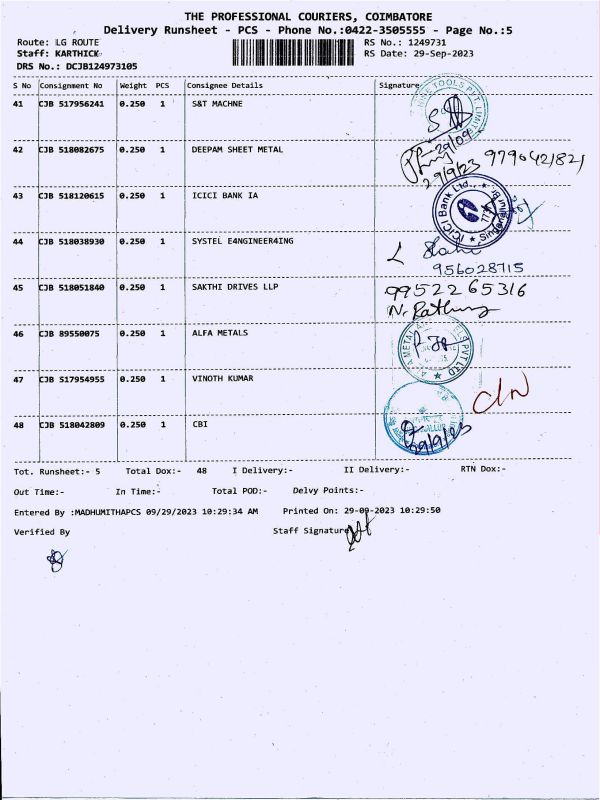 THE PROFESSIONAL COURIERS, COIMBATORE
Delivery Runsheet - PCS - Phone No.:0422-3505555 - Page No.:5
Route: LG ROUTE RS No.: 1249731
Staff: KARTHICK RS Date: 29-Sep-2023
DRS No.: DCJB124973105
S No Consignment No Weight PCS Consignee Details Signature
41 CJB 517956241 0.250 1 S&T MACHNE
42 CJB 518082675 0.250 1 DEEPAM SHEET METAL
29/9/23 9790421821
43 CJB 518120615 0.250 1 ICICI BANK IA
ICICI Bank Ltd.,
44 CJB 518038930 0.250 1 SYSTEL E4NGINEER4ING
956028715
45 CJB 518051840 0.250 1 SAKTHI DRIVES LLP 9952265316
46 CJB 89550075 0.250 1 ALFA METALS
47 CJB 517954955 0.250 1 VINOTH KUMAR
48 CJB 518042809 0.250 1 CBI
Tot. Runsheet:- 5 Total Dox:- 48 I Delivery:- II Delivery:- RTN Dox:-
Out Time:- In Time:- Total POD:- Delvy Points:-
Entered By :MADHUMITHAPCS 09/29/2023 10:29:34 AM Printed On: 29-09-2023 10:29:50
Verified By Staff Signature